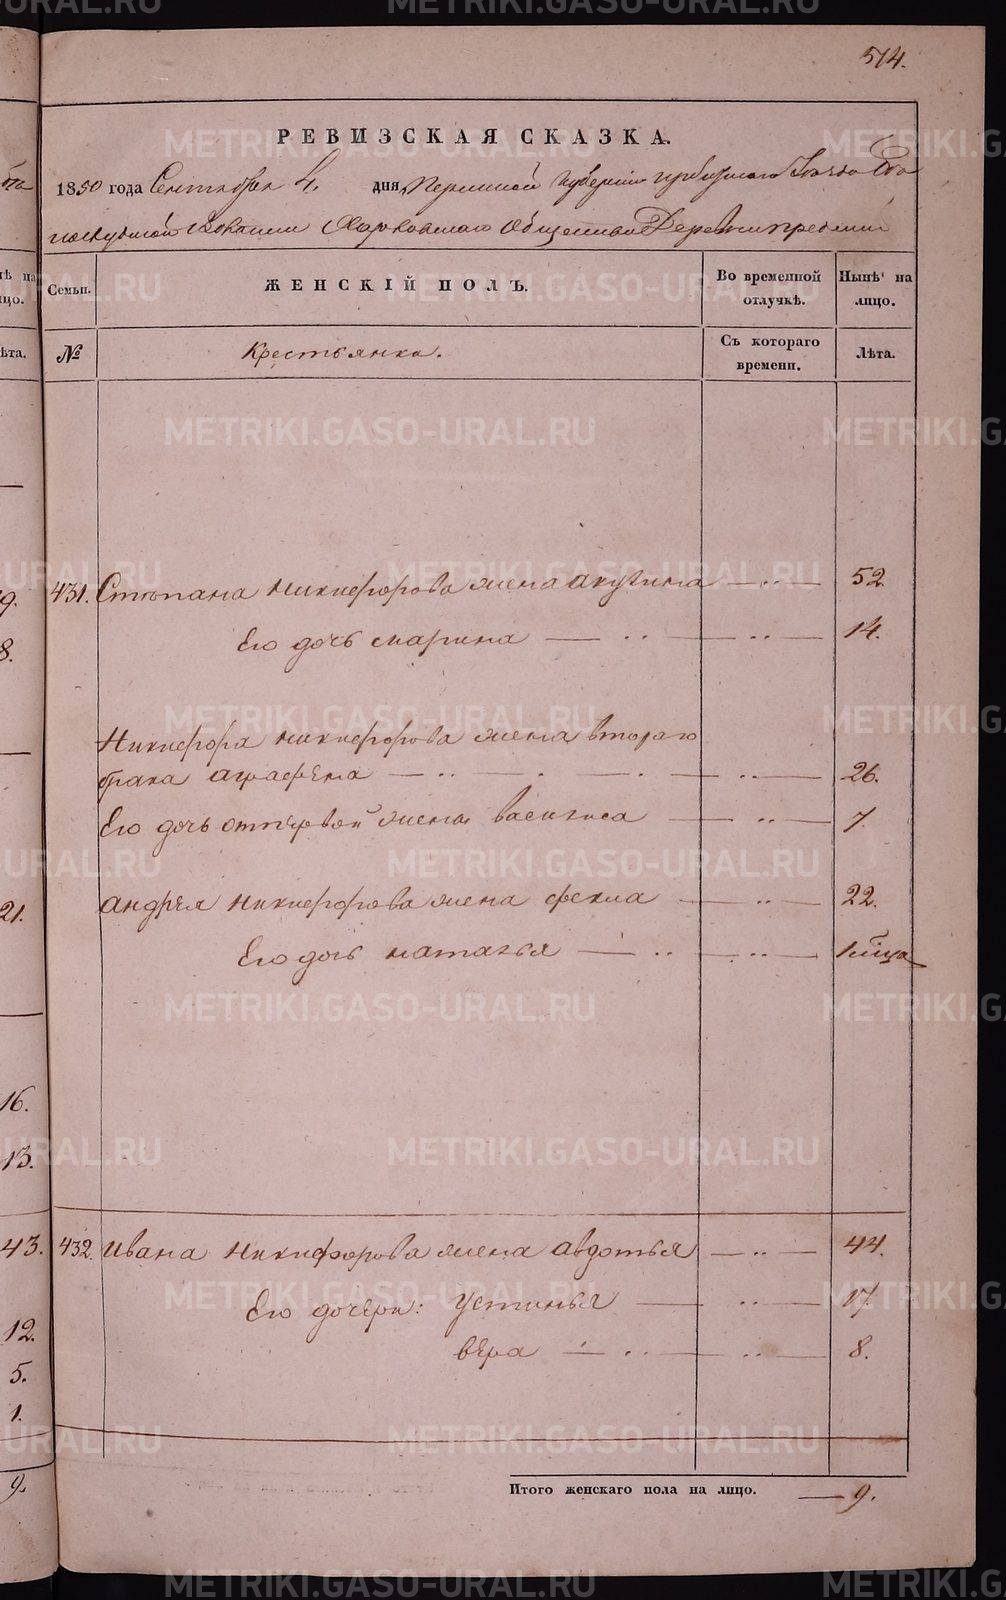 METRIKI.GASO-URAL.RU
514.
РЕВИЗСКАЯ СКАЗКА.
1850 года Сентября 4. дня, Пермской Губернии Ирбитского
Волости Харловскаго Общества Деревни
Семьи. ЖЕНСКІЙ ПОЛЪ. Во временной отлучкѣ. Нынѣ на лицо.
№ Крестьянка. Съ котораго времени. Лѣта.
431. Степана Никифорова жена Акулина — 52
Его дочь Марина — 14.
Никифора Никифорова жена втораго
брака Аграфена — 26.
Его дочь отпервой жены Василиса — 7.
Андрея Никифорова жена Фекла — 22.
Его дочь Наталья —
432. Ивана Никифорова жена Авдотья — 44.
Его дочери: Устинья — 17
Вера — 8.
Итого женскаго пола на лицо. — 9.